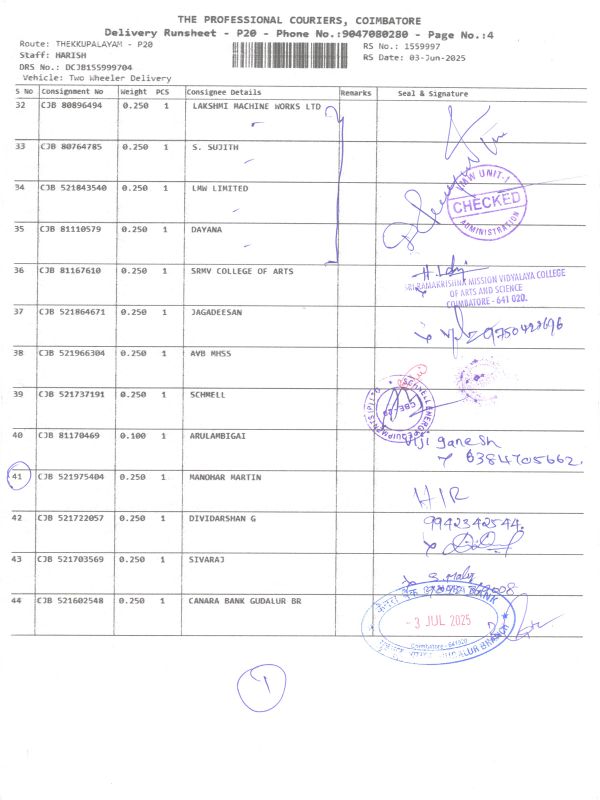 THE PROFESSIONAL COURIERS, COIMBATORE
Delivery Runsheet - P20 - Phone No.:9047080280 - Page No.:4
Route: THEKKUPALAYAM - P20
RS No.: 1559997
Staff: HARISH
RS Date: 03-Jun-2025
DRS No.: DCJB155999704
Vehicle: Two Wheeler Delivery
S No Consignment No Weight PCS Consignee Details Remarks Seal & Signature
32 CJB 80896494 0.250 1 LAKSHMI MACHINE WORKS LTD
33 CJB 80764785 0.250 1 S. SUJITH
34 CJB 521843540 0.250 1 LMW LIMITED
UNIT-1
CHECKED
ADMINISTRATION
35 CJB 81110579 0.250 1 DAYANA
36 CJB 81167610 0.250 1 SRMV COLLEGE OF ARTS
SRI RAMAKRISHNA MISSION VIDYALAYA COLLEGE
OF ARTS AND SCIENCE
COIMBATORE - 641 020.
37 CJB 521864671 0.250 1 JAGADEESAN
38 CJB 521966304 0.250 1 AVB MHSS
39 CJB 521737191 0.250 1 SCHMELL
40 CJB 81170469 0.100 1 ARULAMBIGAI
Viji ganesh
6384705662.
41 CJB 521975404 0.250 1 MANOHAR MARTIN
HIR
42 CJB 521722057 0.250 1 DIVIDARSHAN G
9942342544.
43 CJB 521703569 0.250 1 SIVARAJ
44 CJB 521602548 0.250 1 CANARA BANK GUDALUR BR
BANK
- 3 JUL 2025
Coimbatore - 641020
BRANCH
1